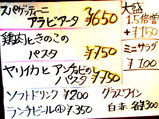 スパゲッティーニ
アラビアータ ¥650
鶏肉ときのこの
パスタ ¥750
ヤリイカとアンチョビの
パスタ ¥750
ソフトドリンク ¥200
ランチビール ¥350
大盛
1.5倍増
+¥150
ミニサラダ
¥100
グラスワイン
白 赤 各¥300